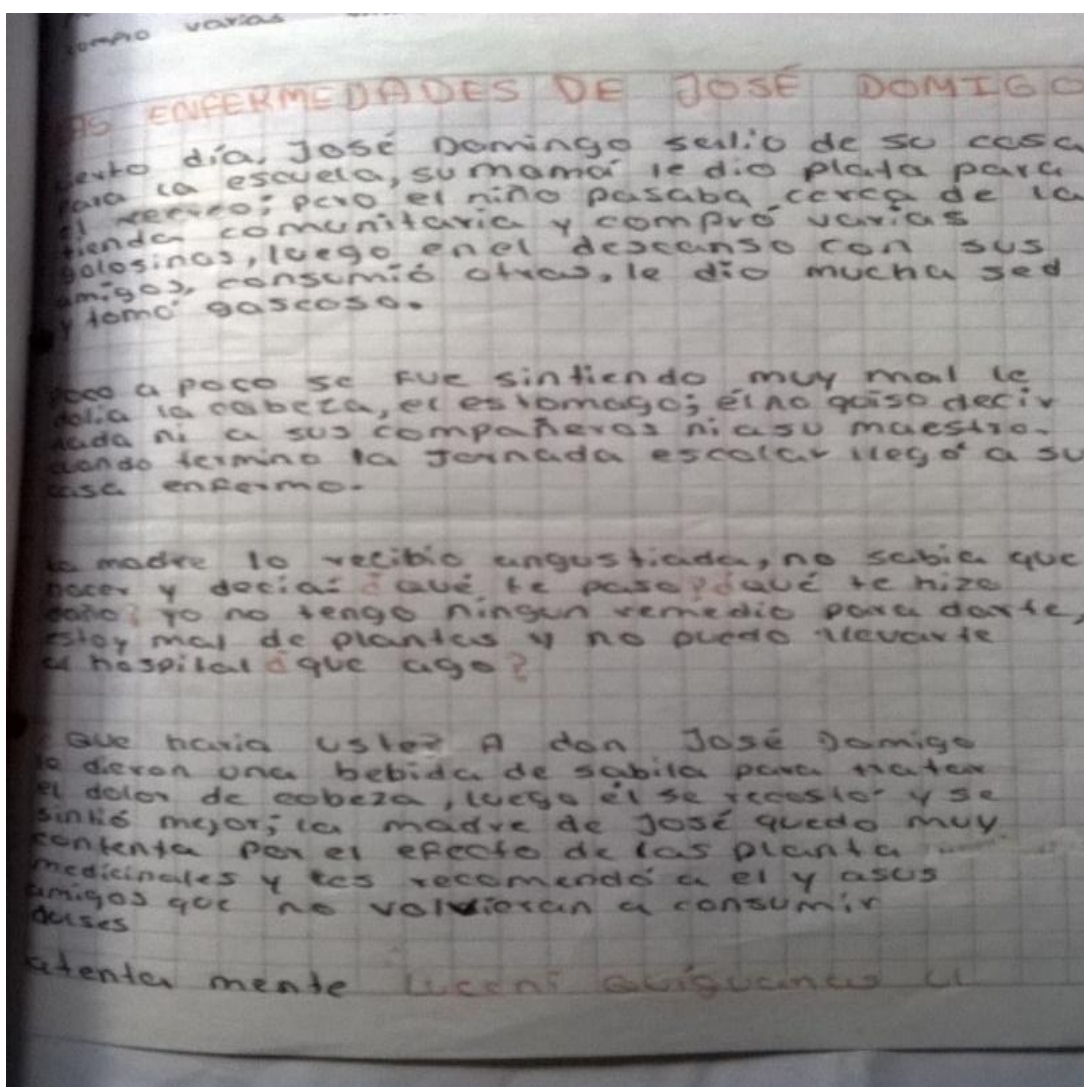 compro varias
AS ENFERMEDADES DE JOSÉ DOMIGO
cierto día, José Domingo salio de su casa
para la escuela, su mamá le dio plata para
el recreo; pero el niño pasaba cerca de la
tienda comunitaria y compró varias
golosinas, luego en el descanso con sus
amigos, consumió otras, le dio mucha sed
y tomó gascosa.
poco a poco se fue sintiendo muy mal le
dolia la cabeza, el estomago; él no quiso decir
nada ni a sus compañeros ni a su maestro.
cuando termino la Jornada escolar llegó a su
casa enfermo.
la madre lo recibio angustiada, no sabia que
hacer y decia: ¿qué te paso? ¿qué te hizo
daño? yo no tengo ningun remedio para darte,
estoy mal de plantas y no puedo llevarte
al hospital ¿que ago?
Que haria usted? A don José Domigo
le dieron una bebida de sabila para tratar
el dolor de cabeza, luego él se recostó y se
sintió mejor; la madre de José quedo muy
contenta por el efecto de las planta
medicinales y les recomendó a el y asus
amigos que no volvieran a consumir
dulses
atenta mente